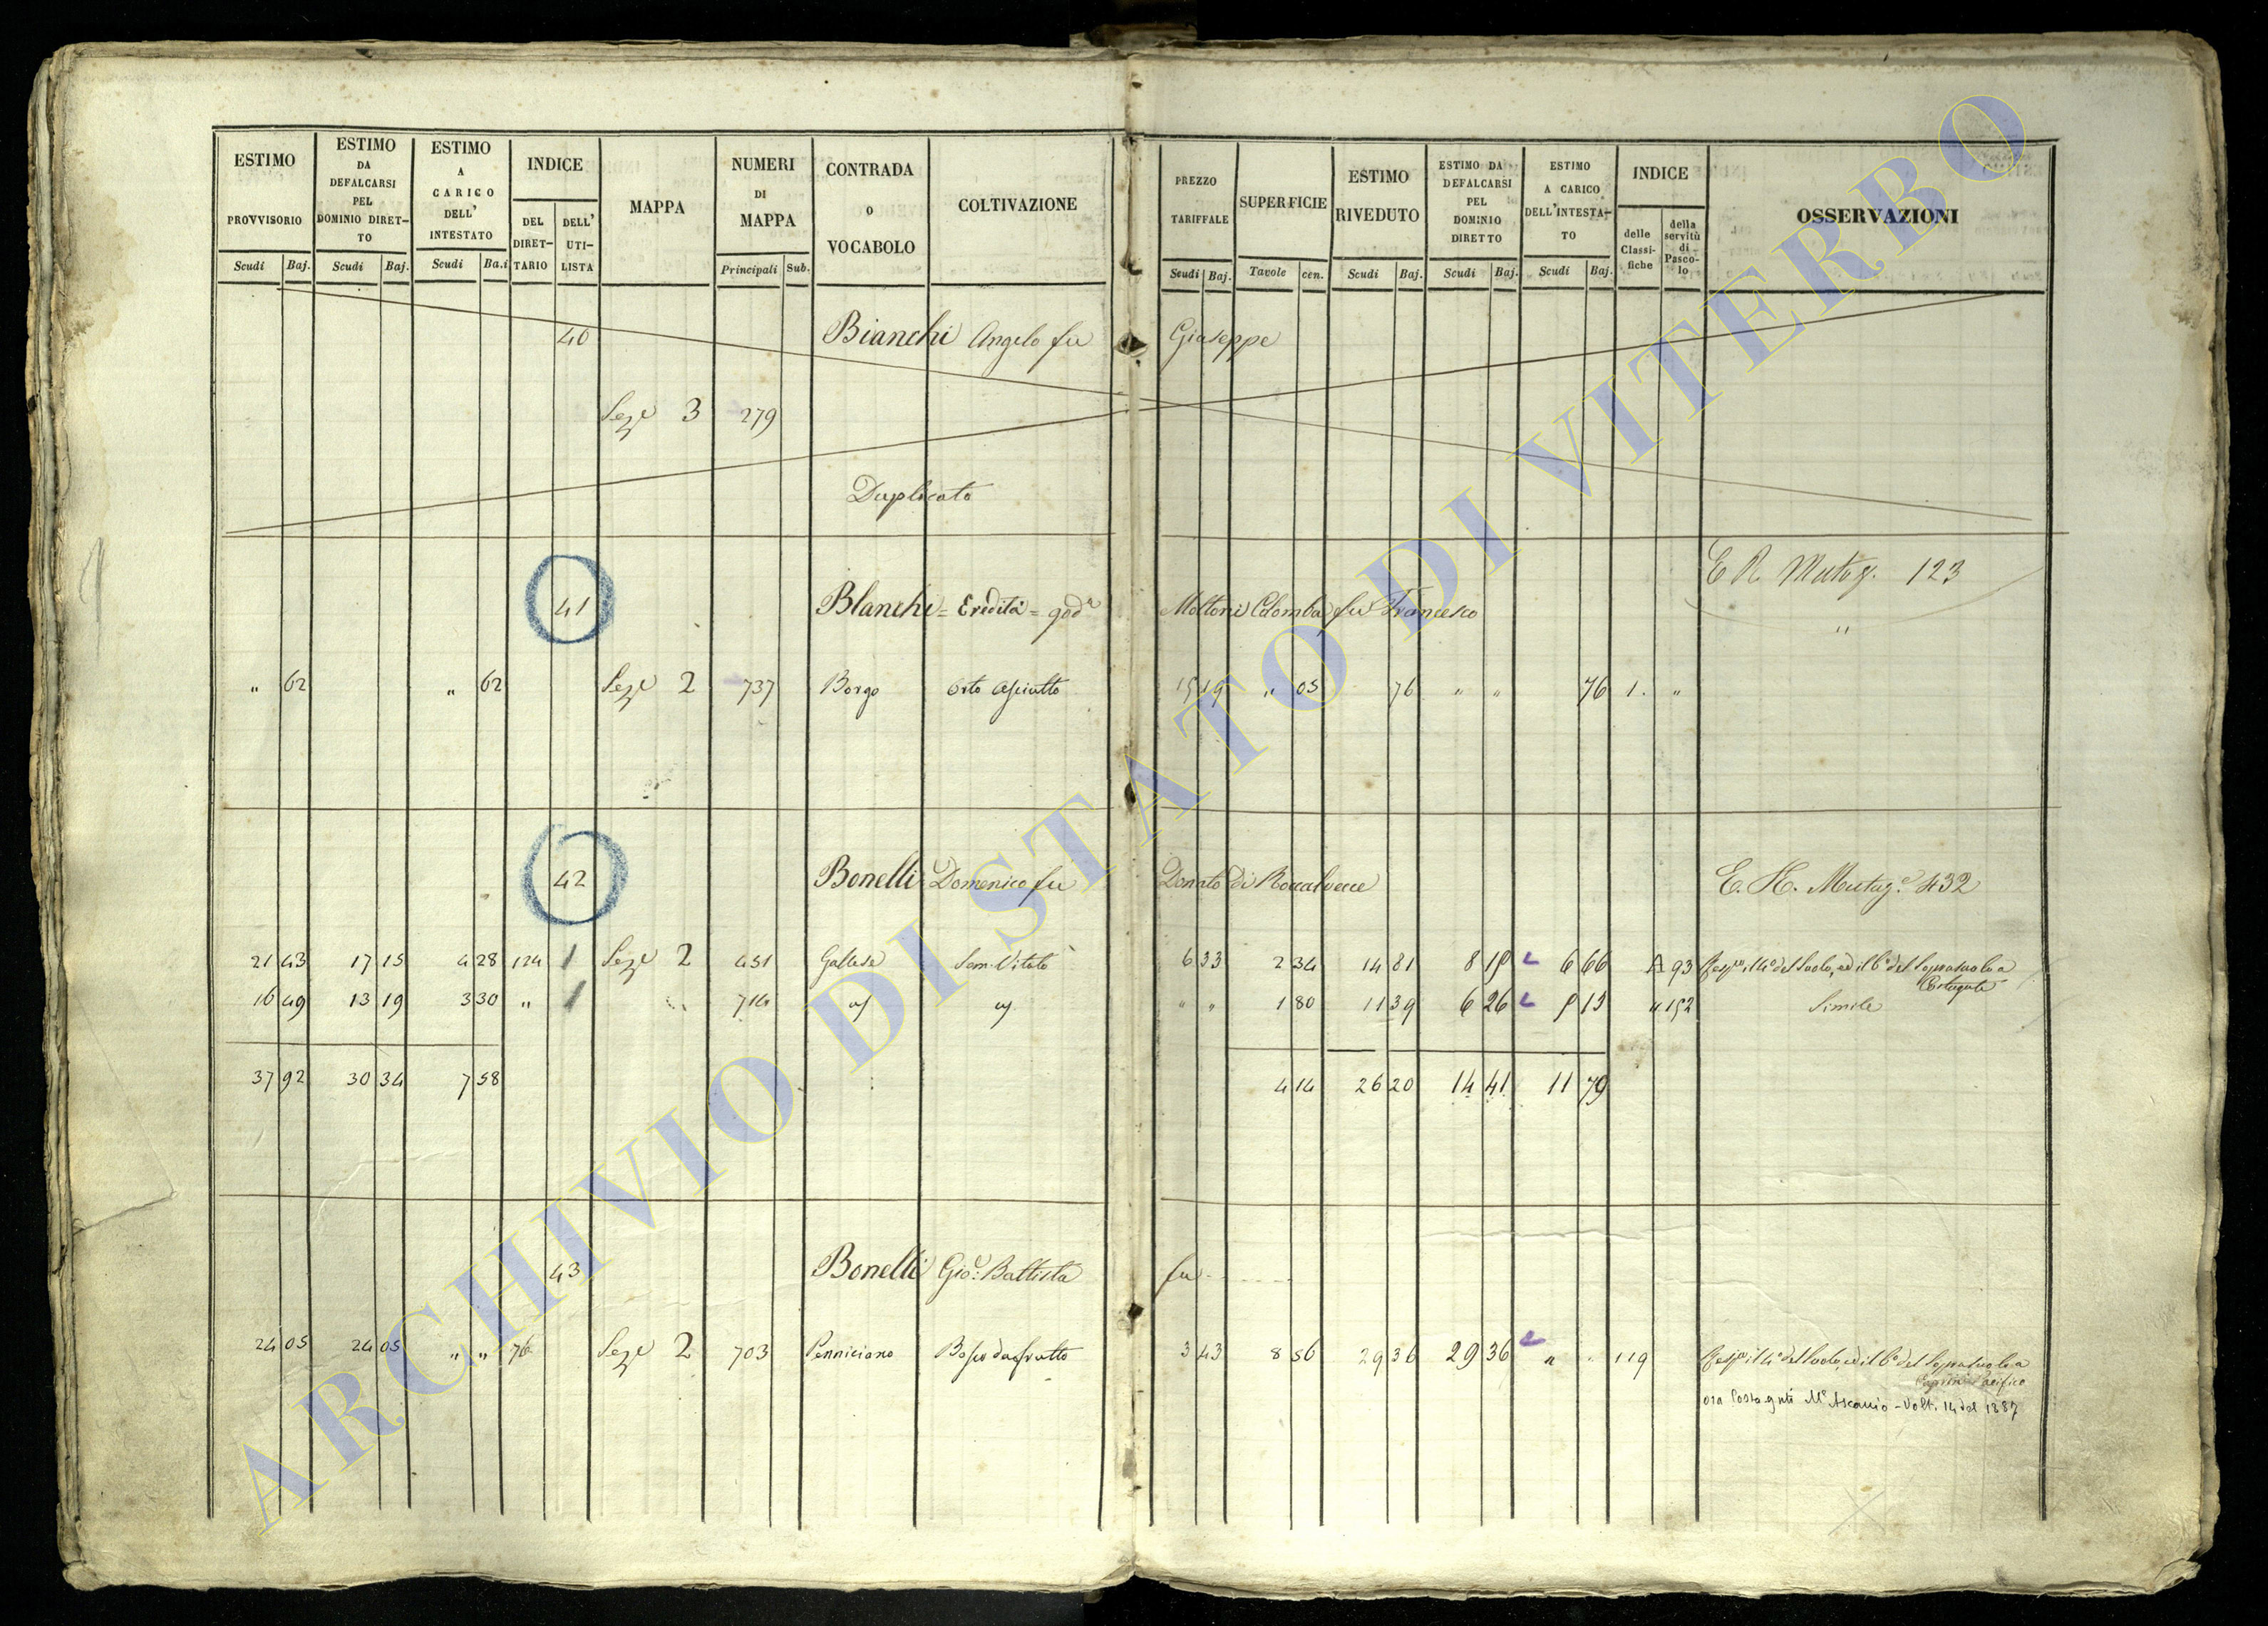 ESTIMO PROVVISORIO Scudi Baj.
ESTIMO DA DEFALCARSI PEL DOMINIO DIRET-TO Scudi Baj.
ESTIMO A CARICO DELL' INTESTATO Scudi Ba.i
INDICE DEL DIRET-TARIO DELL' UTI-LISTA
MAPPA
NUMERI DI MAPPA Principali Sub.
CONTRADA O VOCABOLO
COLTIVAZIONE
PREZZO TARIFFALE Scudi Baj.
SUPERFICIE Tavole cen.
ESTIMO RIVEDUTO Scudi Baj.
ESTIMO DA DEFALCARSI PEL DOMINIO DIRETTO Scudi Baj.
ESTIMO A CARICO DELL'INTESTA-TO Scudi Baj.
INDICE delle Classi-fiche della servitù di Pasco-lo
OSSERVAZIONI
40 Bianchi Angelo fu Giuseppe
Seze 3 279
Duplicato
E R Mutog. 123
41 Blanchi = Eredità = god.a Moltoni Colomba fu Francesco "
" 62 " 62 Seze 2 737 Borgo Orto asciutto 15 19 " 05 76 " " 76 1. "
42 Bonelli Domenico fu Donato di Roccalvecce E. H. Mutag.e 432
21 43 17 15 4 28 124 1 Seze 2 451 Gallese Sem. Vitato 6 33 2 34 14 81 8 15 6 66 A 93 del Suolo, ed il 6° del Soprasuolo a
16 49 13 19 3 30 " 1 " 714 " " 1 80 11 39 6 26 5 13 " 152 Simile
37 92 30 34 7 58 4 14 26 20 14 41 11 79
43 Bonelli Gio: Battista fu
24 05 24 05 " " 76 Seze 2 703 Penniciano Bosco da frutto 3 43 8 56 29 36 29 36 " " 119 del Suolo, ed il 6° del Soprasuolo a
Pacifico
ora Costaguti M.e Ascanio - Volt. 14 del 1887
ARCHIVIO DI STATO DI VITERBO